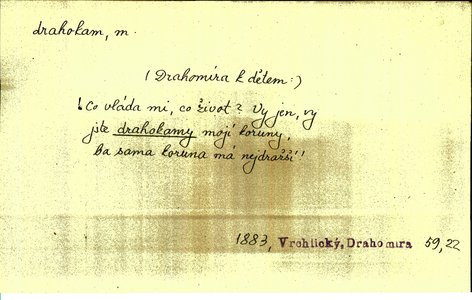 drahokam, m.
(Drahomíra k dětem:)
! Co vláda mi, co život? Vy jen, vy
jste drahokamy mojí koruny,
ba sama koruna má nejdražší!
1883, Vrchlický, Drahomíra 59, 22